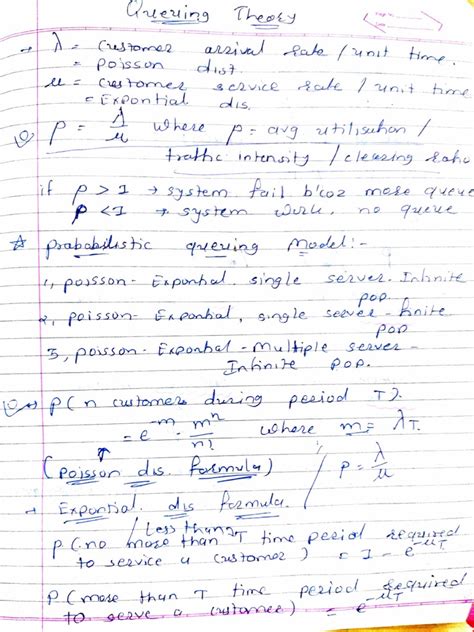 Queuing Theory
→ λ = customer arrival rate / unit time.
= poisson dist.
μ = customer service rate / unit time
= Exponential dis.
ρ = λ/μ where ρ = avg utilisation /
traffic intensity / clearing ratio
if ρ > 1 → system fail b'coz more queue
ρ < 1 → system work, no queue
☆ probabilistic queuing Model:-
1, poisson - Exponential, single server. Infinite pop.
2, poisson - Exponential, single server - finite pop
3, poisson - Exponential - Multiple server - Infinite pop.
→ P(n customers during period T).
= e^-m · m^n/n! where m = λT.
(poisson dis. formula) / ρ = λ/μ
→ Exponential dis formula.
/ Less than
P(no more than T time period required
to service a customer) = 1 - e^-μT
P(more than T time period required
to serve a customer) = e^-μT